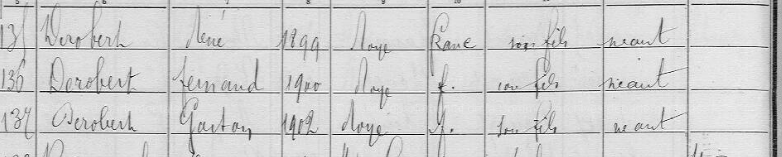 135 Derobert René 1899 Roye franc son fils néant
136 Derobert Fernand 1900 Roye f. son fils néant
137 Derobert Gaston 1902 Roye f. son fils néant